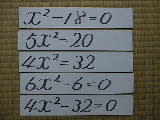 x²-18=0
5x²=20
4x²=32
6x²-6=0
4x²-32=0